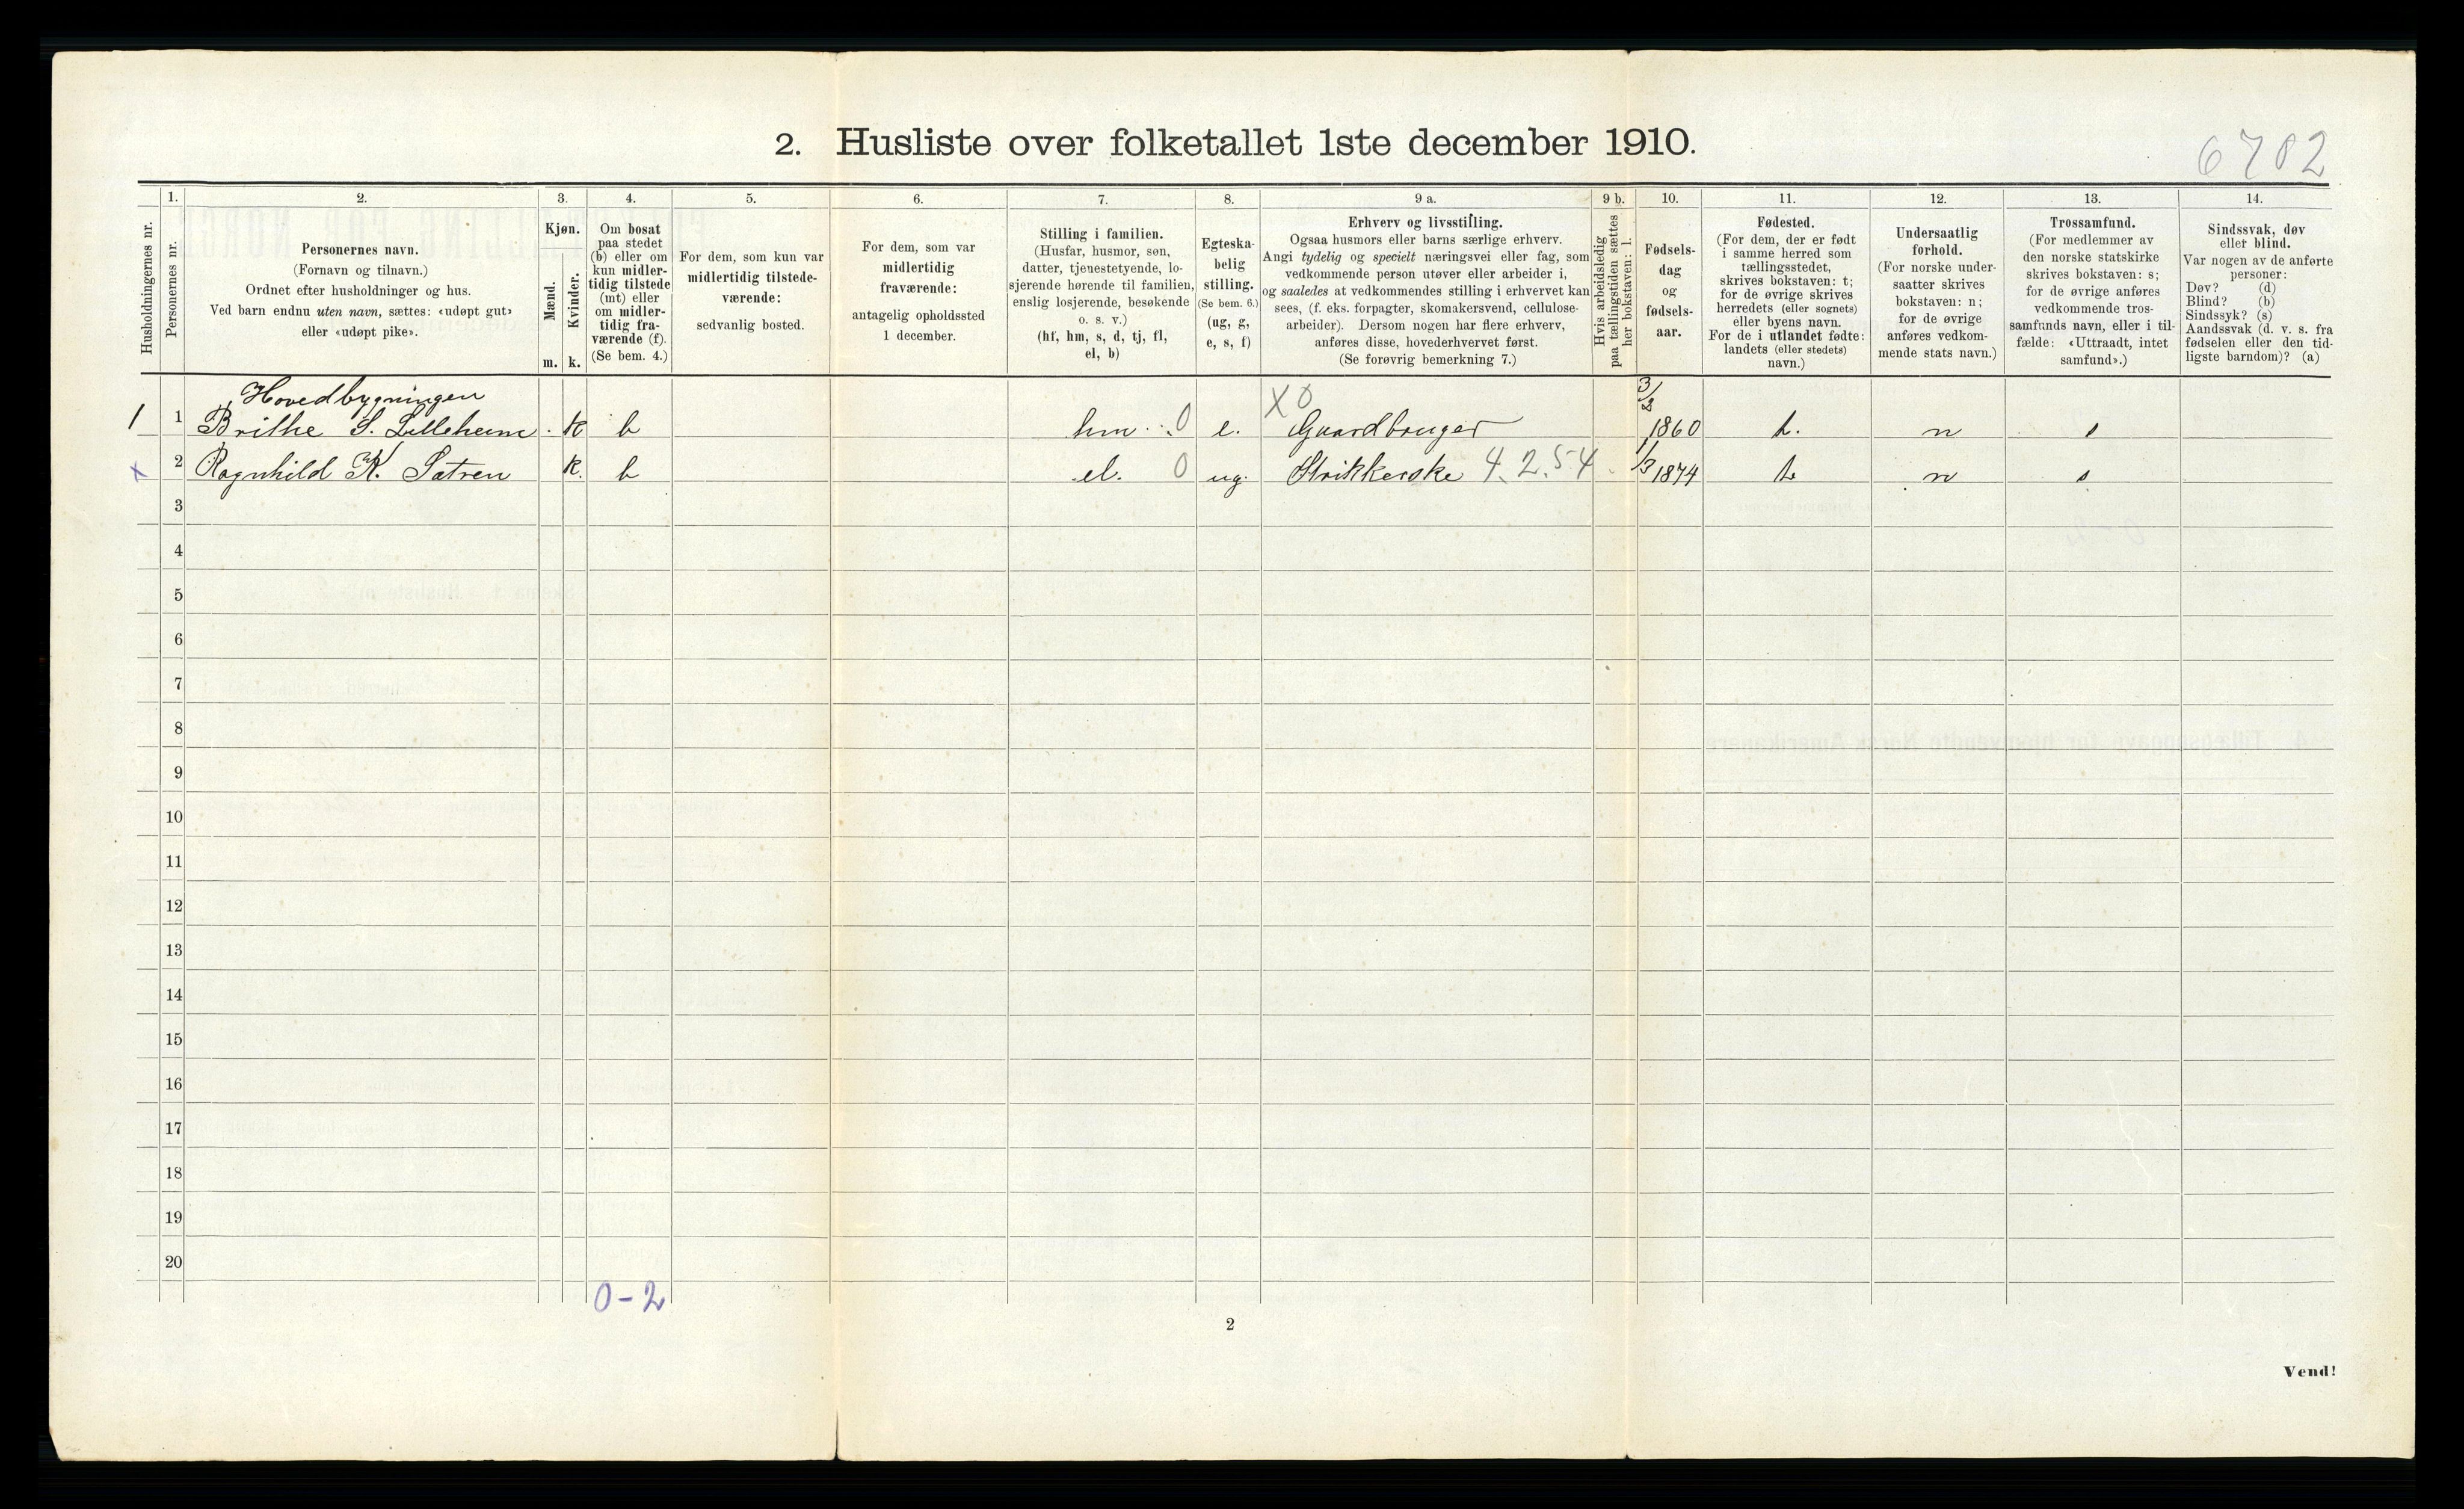 2. Husliste over folketallet 1ste december 1910.
6702
Husholdningernes nr.
1.
Personernes nr.
2.
Personernes navn.
(Fornavn og tilnavn.)
Ordnet efter husholdninger og hus.
Ved barn endnu uten navn, sættes: «udøpt gut»
eller «udøpt pike».
3.
Kjøn.
Mænd.
Kvinder.
m. k.
4.
Om bosat
paa stedet
(b) eller om
kun midler-
tidig tilstede
(mt) eller
om midler-
tidig fra-
værende (f).
(Se bem. 4.)
5.
For dem, som kun var
midlertidig tilstede-
værende:
sedvanlig bosted.
6.
For dem, som var
midlertidig
fraværende:
antagelig opholdssted
1 december.
7.
Stilling i familien.
(Husfar, husmor, søn,
datter, tjenestetyende, lo-
sjerende hørende til familien,
enslig losjerende, besøkende
o. s. v.)
(hf, hm, s, d, tj, fl,
el, b)
8.
Egteska-
belig
stilling.
(Se bem. 6.)
(ug, g,
e, s, f)
9 a.
Erhverv og livsstilling.
Ogsaa husmors eller barns særlige erhverv.
Angi tydelig og specielt næringsvei eller fag, som
vedkommende person utøver eller arbeider i,
og saaledes at vedkommendes stilling i erhvervet kan
sees, (f. eks. forpagter, skomakersvend, cellulose-
arbeider). Dersom nogen har flere erhverv,
anføres disse, hovederhvervet først.
(Se forøvrig bemerkning 7.)
9 b.
Hvis arbeidsledig
paa tællingstiden sættes
her bokstaven: l.
10.
Fødsels-
dag
og
fødsels-
aar.
11.
Fødested.
(For dem, der er født
i samme herred som
tællingsstedet,
skrives bokstaven: t;
for de øvrige skrives
herredets (eller sognets)
eller byens navn.
For de i utlandet fødte:
landets (eller stedets)
navn.)
12.
Undersaatlig
forhold.
(For norske under-
saatter skrives
bokstaven: n;
for de øvrige
anføres vedkom-
mende stats navn.)
13.
Trossamfund.
(For medlemmer av
den norske statskirke
skrives bokstaven: s;
for de øvrige anføres
vedkommende tros-
samfunds navn, eller i til-
fælde: «Uttraadt, intet
samfund».)
14.
Sindssvak, døv
eller blind.
Var nogen av de anførte
personer:
Døv? (d)
Blind? (b)
Sindssyk? (s)
Aandssvak (d. v. s. fra
fødselen eller den tid-
ligste barndom)? (a)
Hovedbygningen
1 1 Brithe S. Lilleheim. k b hm. 0 e. X0 Gaardbruger 3/2 1860 t. n s
x 2 Ragnhild K. Sætren k. b el. 0 ug. Strikkerske 4.2.54 1/3 1874 t n s
3
4
5
6
7
8
9
10
11
12
13
14
15
16
17
18
19
20
0-2
2
Vend!